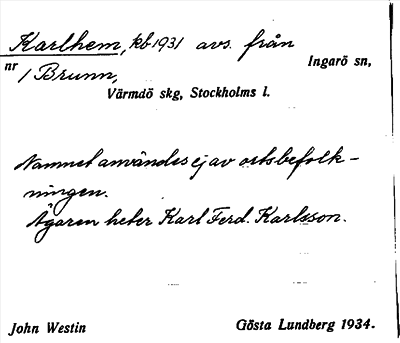 Karlhem, kb 1931 avs. från
Ingarö sn,
nr 1 Brunn,
Värmdö skg, Stockholms l.
Namnet användes ej av ortsbefolk-
ningen.
Ägaren heter Karl Ferd. Karlsson.
John Westin
Gösta Lundberg 1934.